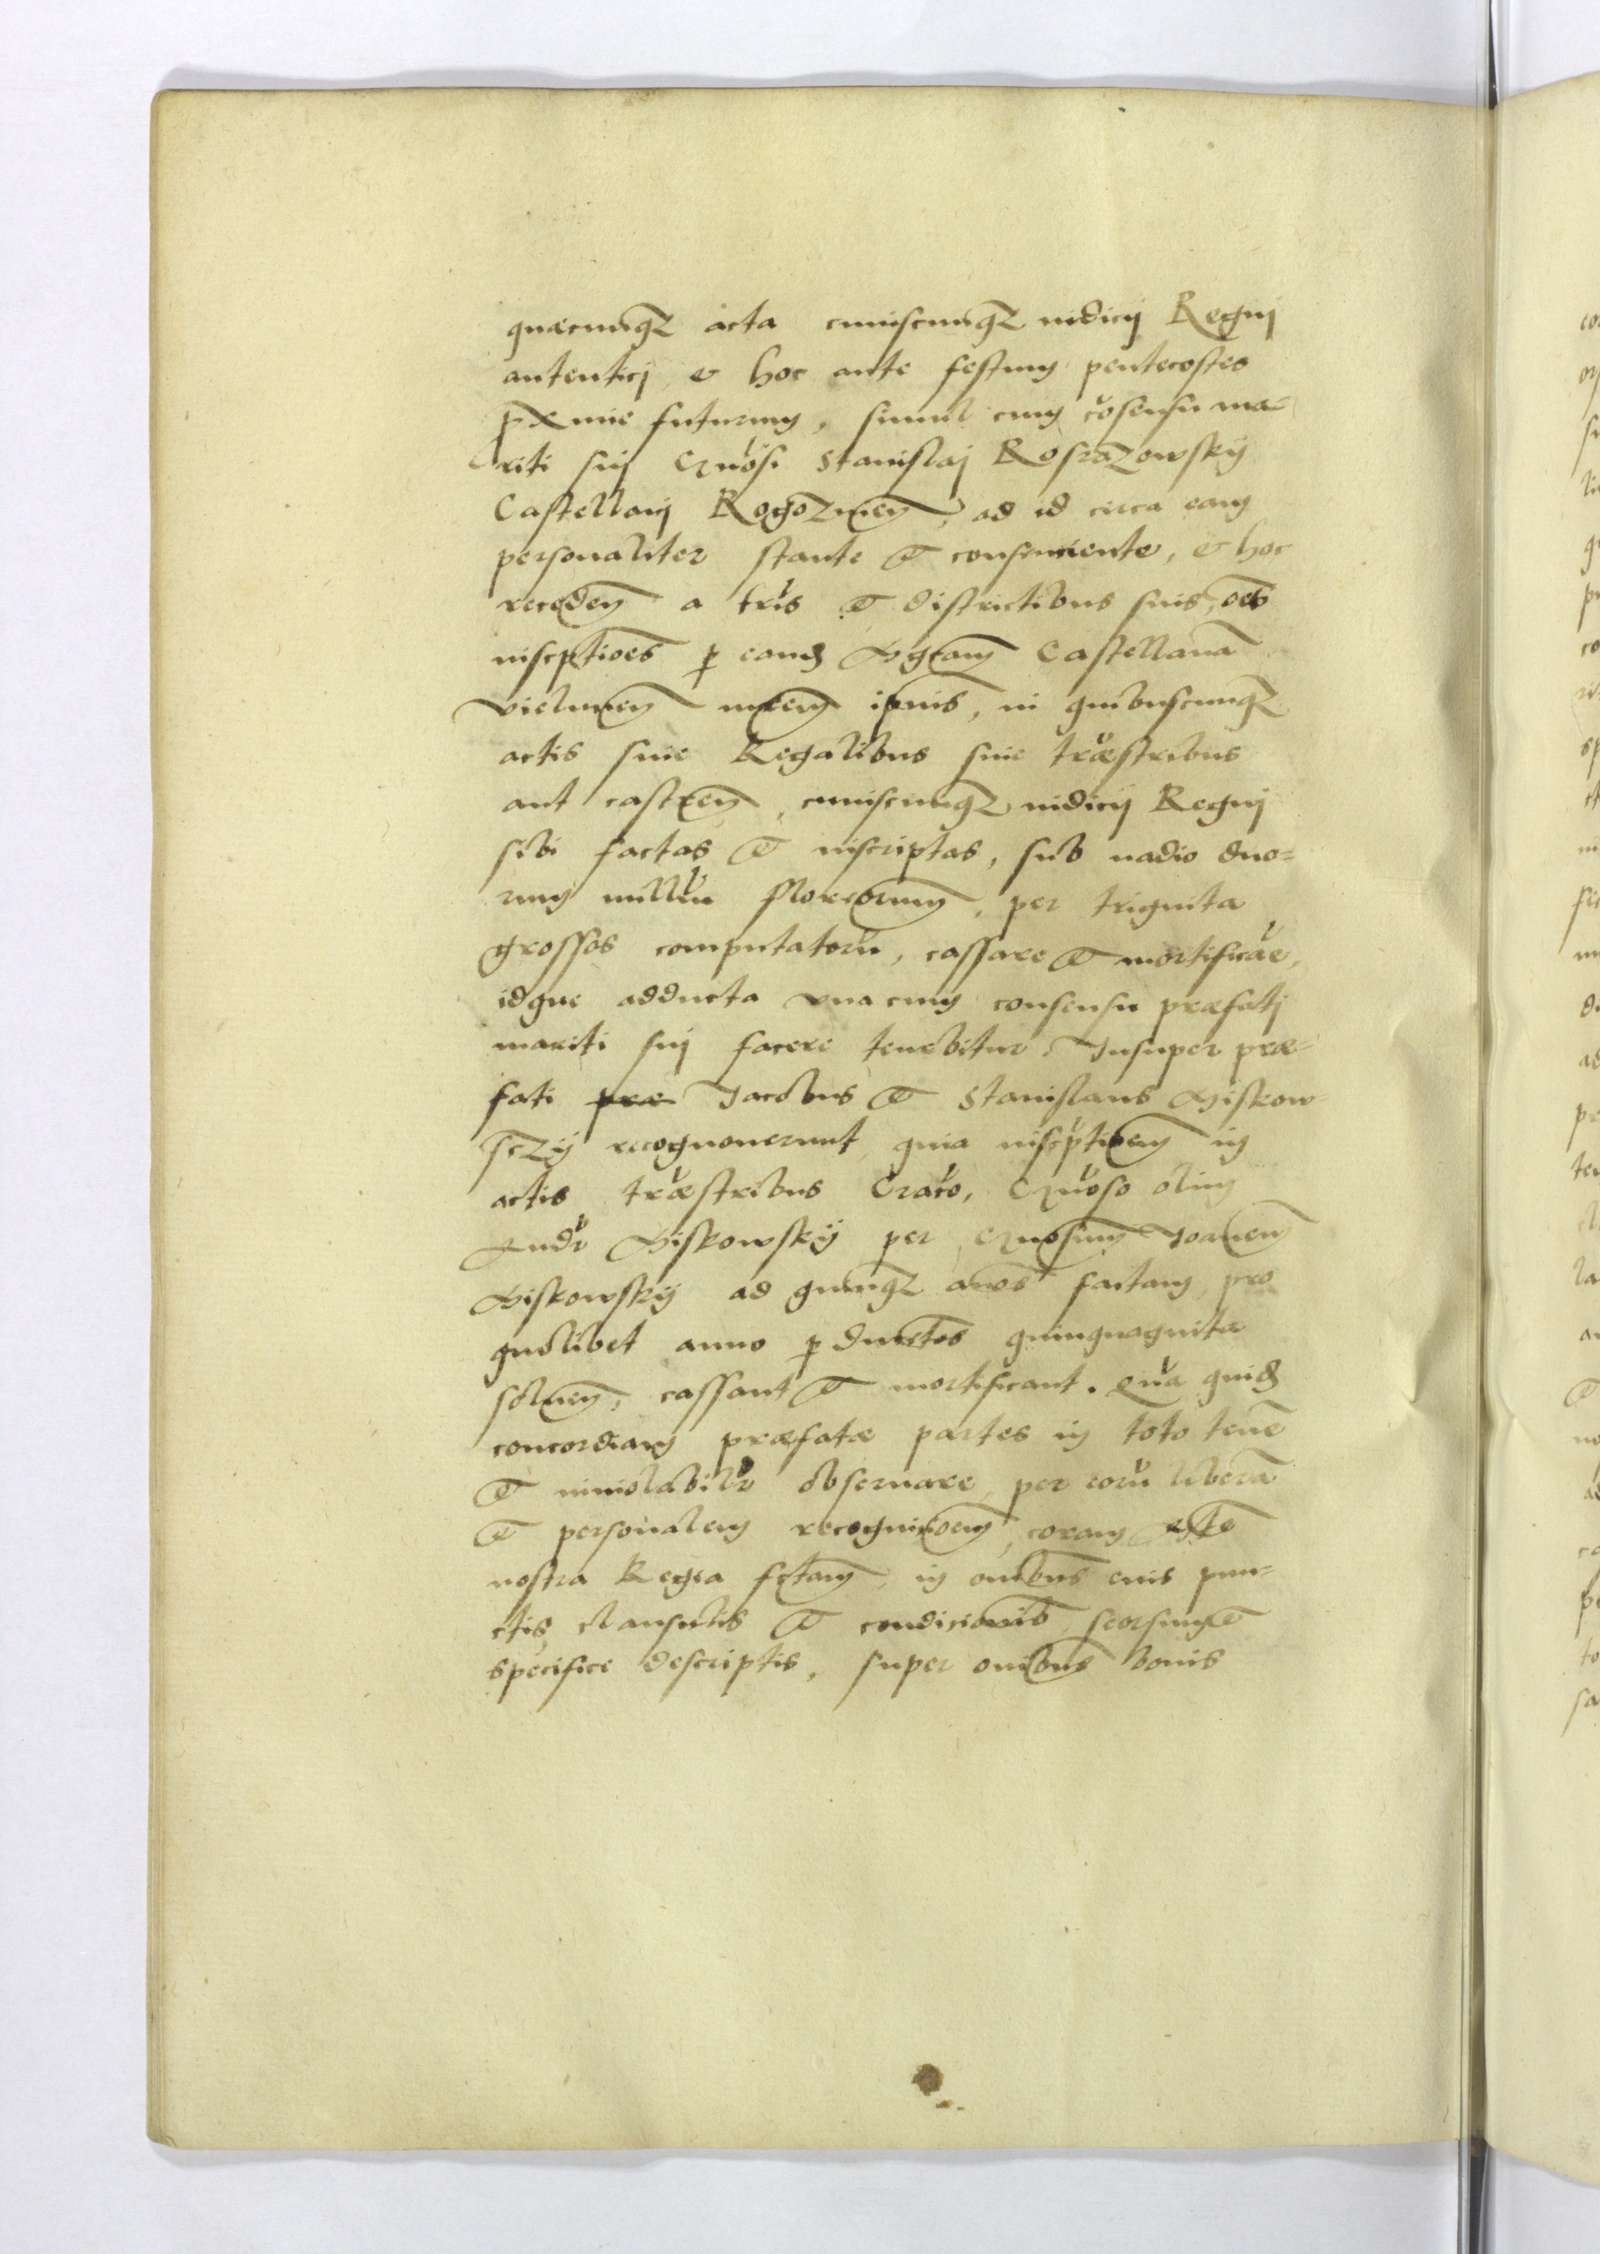 quæcunqz acta cuiuscunqz iudicij Regnj
autenticj & hoc ante festum pentecostes
pxime futurum, simul cum cosensu ma-
riti sui Gnosi Stanislaj Rosrazowsky
Castellani Rogoznen, ad id circa eam
personaliter stante et consenciente, & hoc
receden a tris et districtibus suis, oes
inscptioes p eand Mgcam Castellana
Vielunen mrem ipius, in quibuscunqz
actis siue Regalibus siue træstribus
aut castren, cuiuscunqz iudicij Regnj
sibi factas et inscriptas, sub uadio duo-
rum milliu florenorum, per triginta
grossos computatoru, cassare et mortificae,
idque adducta una cum consensu præfatj
mariti sui facere tenebitur. Insuper præ-
fati præ Jacobus et Stanislaus Miskow-
sczy recognouerunt quia inscptioem in
actis træstribus Craco, Gnoso olim
Andr Miskowsky per Gnosum Joanem
Miskowsky ad quinqz anos factam, pro
quolibet anno p ducetos quinquaginta
soluen, cassant et mortificant. Qua quid
concordiam præfatæ partes in toto tene
et inuiolabilr obseruare, per eoru libera
et personalem recognicioem, coram Mte
nostra Regia fctam, in omibus eius pun-
ctis, clausulis et condicioib, seorsum et
specifice descriptis, super omibus bonis